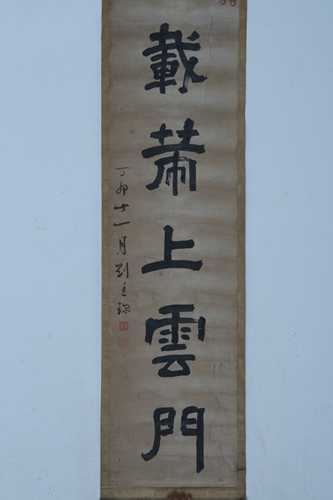 載上雲門
丁卯十一月劉